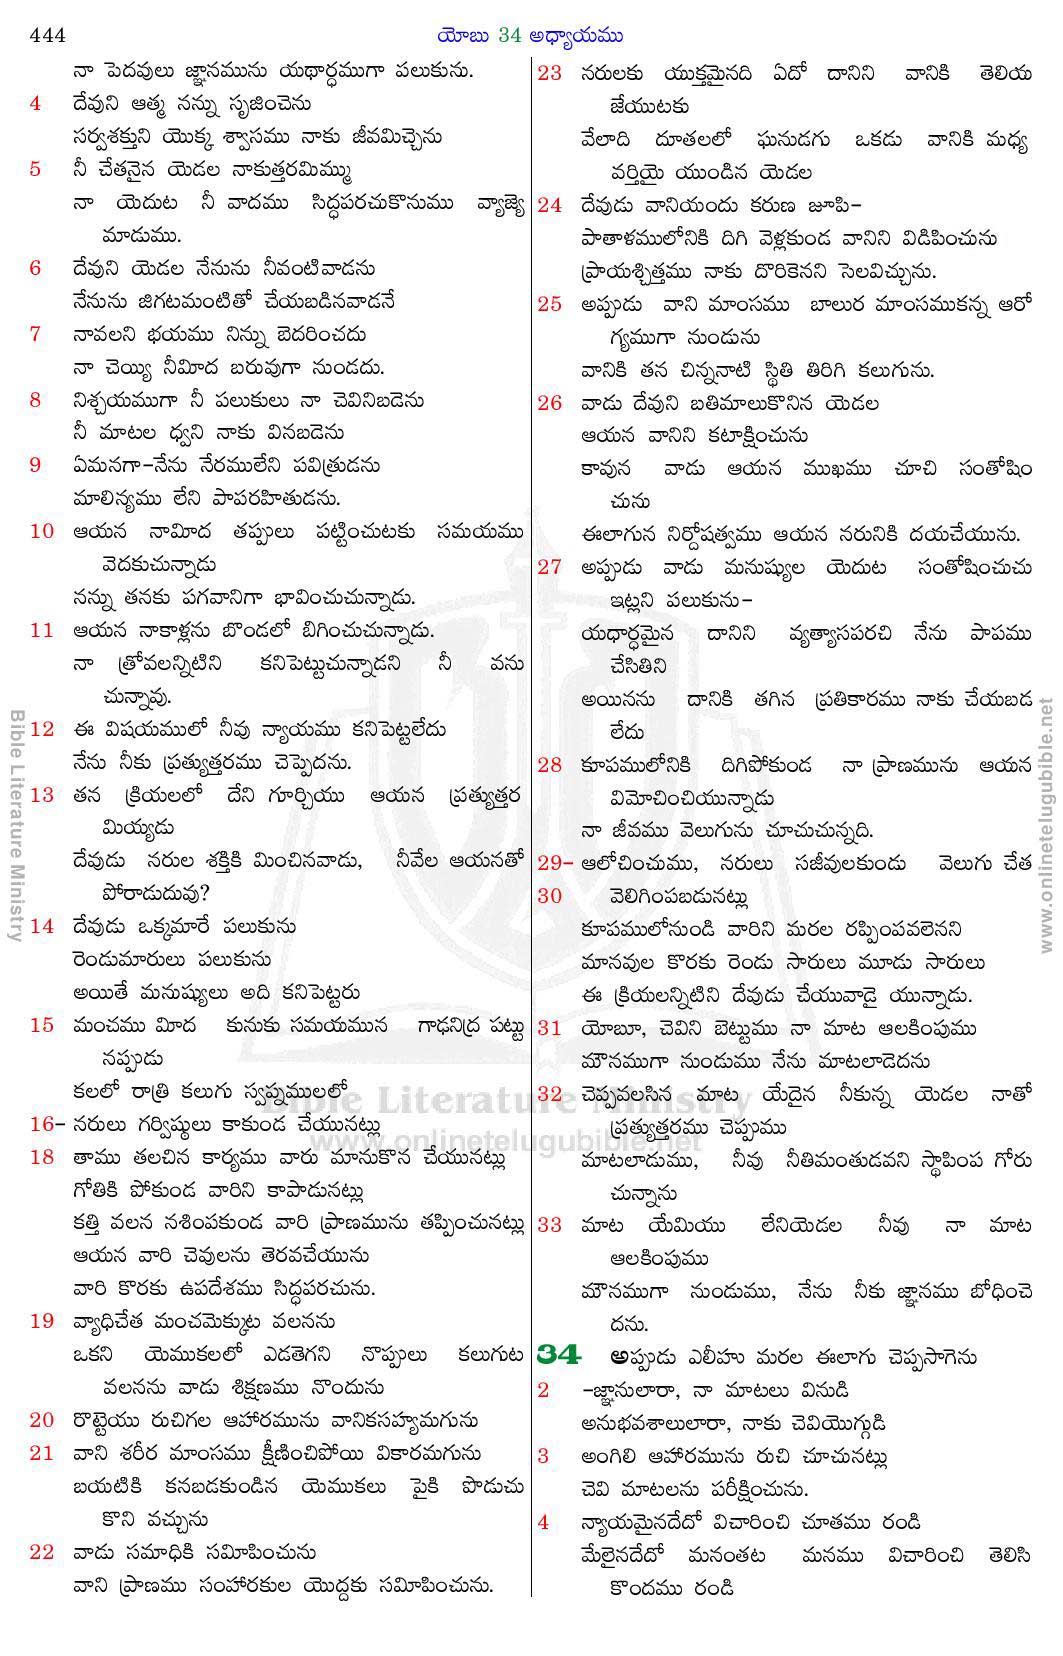 444
యోబు 34 అధ్యాయము
నా పెదవులు జ్ఞానమును యథార్థముగా పలుకును.
4 దేవుని ఆత్మ నన్ను సృజించెను
సర్వశక్తుని యొక్క శ్వాసము నాకు జీవమిచ్చెను
5 నీ చేతనైన యెడల నాకుత్తరమిమ్ము
నా యెదుట నీ వాదము సిద్ధపరచుకొనుము వ్యాజ్యె
మాడుము.
6 దేవుని యెడల నేనును నీవంటివాడను
నేనును జిగటమంటితో చేయబడినవాడనే
7 నావలని భయము నిన్ను బెదరించదు
నా చెయ్యి నీమీద బరువుగా నుండదు.
8 నిశ్చయముగా నీ పలుకులు నా చెవినిబడెను
నీ మాటల ధ్వని నాకు వినబడెను
9 ఏమనగా-నేను నేరములేని పవిత్రుడను
మాలిన్యము లేని పాపరహితుడను.
10 ఆయన నామీద తప్పులు పట్టించుటకు సమయము
వెదకుచున్నాడు
నన్ను తనకు పగవానిగా భావించుచున్నాడు.
11 ఆయన నాకాళ్లను బొండలో బిగించుచున్నాడు.
నా త్రోవలన్నిటిని కనిపెట్టుచున్నాడని నీ వను
చున్నావు.
12 ఈ విషయములో నీవు న్యాయము కనిపెట్టలేదు
నేను నీకు ప్రత్యుత్తరము చెప్పెదను.
13 తన క్రియలలో దేని గూర్చియు ఆయన ప్రత్యుత్తర
మియ్యడు
దేవుడు నరుల శక్తికి మించినవాడు, నీవేల ఆయనతో
పోరాడుదువు?
14 దేవుడు ఒక్కమారే పలుకును
రెండుమారులు పలుకును
అయితే మనుష్యులు అది కనిపెట్టరు
15 మంచము మీద కునుకు సమయమున గాఢనిద్ర పట్టు
నప్పుడు
కలలో రాత్రి కలుగు స్వప్నములలో
16- నరులు గర్విష్ఠులు కాకుండ చేయునట్లు
18 తాము తలచిన కార్యము వారు మానుకొన చేయునట్లు
గోతికి పోకుండ వారిని కాపాడునట్లు
కత్తి వలన నశింపకుండ వారి ప్రాణమును తప్పించునట్లు
ఆయన వారి చెవులను తెరవచేయును
వారి కొరకు ఉపదేశము సిద్ధపరచును.
19 వ్యాధిచేత మంచమెక్కుట వలనను
ఒకని యెముకలలో ఎడతెగని నొప్పులు కలుగుట
వలనను వాడు శిక్షణము నొందును
20 రొట్టెయు రుచిగల ఆహారమును వానికసహ్యమగును
21 వాని శరీర మాంసము క్షీణించిపోయి వికారమగును
బయటికి కనబడకుండిన యెముకలు పైకి పొడుచు
కొని వచ్చును
22 వాడు సమాధికి సమీపించును
వాని ప్రాణము సంహారకుల యొద్దకు సమీపించును.
23 నరులకు యుక్తమైనది ఏదో దానిని వానికి తెలియ
జేయుటకు
వేలాది దూతలలో ఘనుడగు ఒకడు వానికి మధ్య
వర్తియై యుండిన యెడల
24 దేవుడు వానియందు కరుణ జూపి-
పాతాళములోనికి దిగి వెళ్లకుండ వానిని విడిపించును
ప్రాయశ్చిత్తము నాకు దొరికెనని సెలవిచ్చును.
25 అప్పుడు వాని మాంసము బాలుర మాంసముకన్న ఆరో
గ్యముగా నుండును
వానికి తన చిన్ననాటి స్థితి తిరిగి కలుగును.
26 వాడు దేవుని బతిమాలుకొనిన యెడల
ఆయన వానిని కటాక్షించును
కావున వాడు ఆయన ముఖము చూచి సంతోషిం
చును
ఈలాగున నిర్దోషత్వము ఆయన నరునికి దయచేయును.
27 అప్పుడు వాడు మనుష్యుల యెదుట సంతోషించుచు
ఇట్లని పలుకును-
యధార్థమైన దానిని వ్యత్యాసపరచి నేను పాపము
చేసితిని
అయినను దానికి తగిన ప్రతికారము నాకు చేయబడ
లేదు
28 కూపములోనికి దిగిపోకుండ నా ప్రాణమును ఆయన
విమోచించియున్నాడు
నా జీవము వెలుగును చూచుచున్నది.
29- ఆలోచించుము, నరులు సజీవులకుండు వెలుగు చేత
30 వెలిగింపబడునట్లు
కూపములోనుండి వారిని మరల రప్పింపవలెనని
మానవుల కొరకు రెండు సారులు మూడు సారులు
ఈ క్రియలన్నిటిని దేవుడు చేయువాడై యున్నాడు.
31 యోబూ, చెవిని బెట్టుము నా మాట ఆలకింపుము
మౌనముగా నుండుము నేను మాటలాడెదను
32 చెప్పవలసిన మాట యేదైన నీకున్న యెడల నాతో
ప్రత్యుత్తరము చెప్పుము
మాటలాడుము, నీవు నీతిమంతుడవని స్థాపింప గోరు
చున్నాను
33 మాట యేమియు లేనియెడల నీవు నా మాట
ఆలకింపుము
మౌనముగా నుండుము, నేను నీకు జ్ఞానము బోధించె
దను.
34 అప్పుడు ఎలీహు మరల ఈలాగు చెప్పసాగెను
2 -జ్ఞానులారా, నా మాటలు వినుడి
అనుభవశాలులారా, నాకు చెవియొగ్గుడి
3 అంగిలి ఆహారమును రుచి చూచునట్లు
చెవి మాటలను పరీక్షించును.
4 న్యాయమైనదేదో విచారించి చూతము రండి
మేలైనదేదో మనంతట మనము విచారించి తెలిసి
కొందము రండి
Bible Literature Ministry
www.onlinetelugubible.net
Bible Literature Ministry
www.onlinetelugubible.net